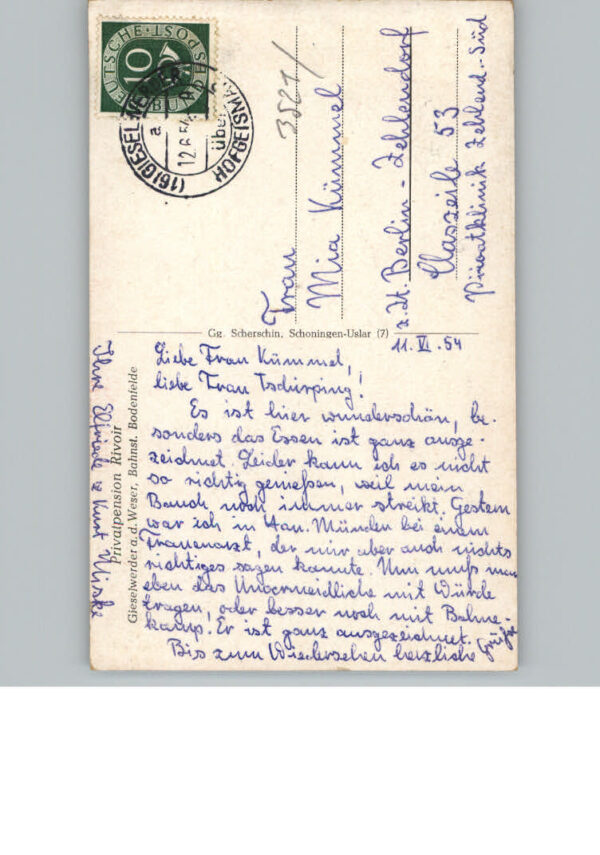 DEUTSCHE BUNDESPOST
10
(16) GIESELWERDER
a
12.6.54
über
HOFGEISMAR
3521/
Frau
Mia Kümmel
z. Zt. Berlin-Zehlendorf
Claszeile 53
Privatklinik Zehlend.-Süd
Gg. Scherschin, Schoningen-Uslar (7)
11. VI. 54
Liebe Frau Kümmel,
liebe Frau Tschirping!
Es ist hier wunderschön, be-
sonders das Essen ist ganz ausge-
zeichnet. Leider kann ich es nicht
so richtig genießen, weil mein
Bauch noch immer streikt. Gestern
war ich in Han. Münden bei einem
Frauenarzt, der mir aber auch nichts
richtiges sagen konnte. Nun muß man
eben das Unvermeidliche mit Würde
tragen, oder besser noch mit Bohne-
kamp. Er ist ganz ausgezeichnet.
Bis zum Wiedersehen herzliche Grüße
Ihre Elfriede u. Kurt
Privatpension Rivoir
Gieselwerder a. d. Weser, Bahnst. Bodenfelde